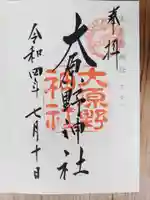 奉拝
大原野神社
大原野
神社
令和四年七月十日